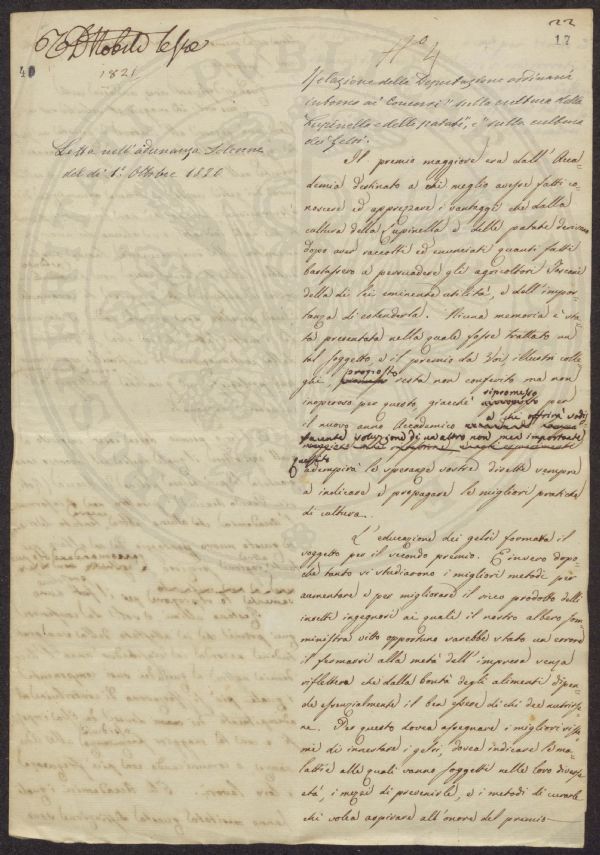 22
17
40
1821
N.o 4
Relazione della Deputazione ordinaria
intorno ai Concorsi "sulla cultura della
Lupinella e delle patate", e "sulla cultura
dei Gelsi.
Letta nell'adunanza Solenne
del dì 1.o Ottobre 1820
Il premio maggiore era dall'Acca=
demia destinato a chi meglio avesse fatti co=
noscere ed apprezzare i vantaggi che dalla
cultura della Lupinella e delle patate derivano
dopo aver raccolti ed enunciati quanti fatti
bastassero a persuadere gli agricoltori Toscani
della di lei eminente utilità, e dell'impor=
tanza di estenderla. Niuna memoria è sta=
ta presentata nella quale fosse trattato un
tal soggetto, e il premio da Voi, illustri colle
ghi, proposto resta non conferito ma non
inoperoso per questo, giacchè ripromesso per
il nuovo anno Accademico a chi offrirà sodis=
facente soluzione di un altro non meno importante
quesito
adempirà le speranze vostre dirette sempre
a indicare e propagare le migliori pratiche
di cultura.
L'educazione dei gelsi formava il
soggetto per il secondo premio. E invero dopo=
chè tanto si studiarono i migliori metodi per
aumentare e per migliorare il ricco prodotto delli
insetti ingegnosi ai quali il nostro albero som=
ministra vitto opportuno sarebbe stato un errore
il fermarsi alla metà dell'impresa senza
riflettere che dalla bontà degli alimenti dipen=
de essenzialmente il ben essere di chi dee nutrirse=
ne. Per questo dovea assegnare i migliori siste=
mi di innestare i gelsi, dovea indicare le ma=
lattie alle quali vanno soggetti nelle loro diverse
età, i mezzi di prevenirle, e i metodi di curarle
chi volea aspirare all'onore del premio